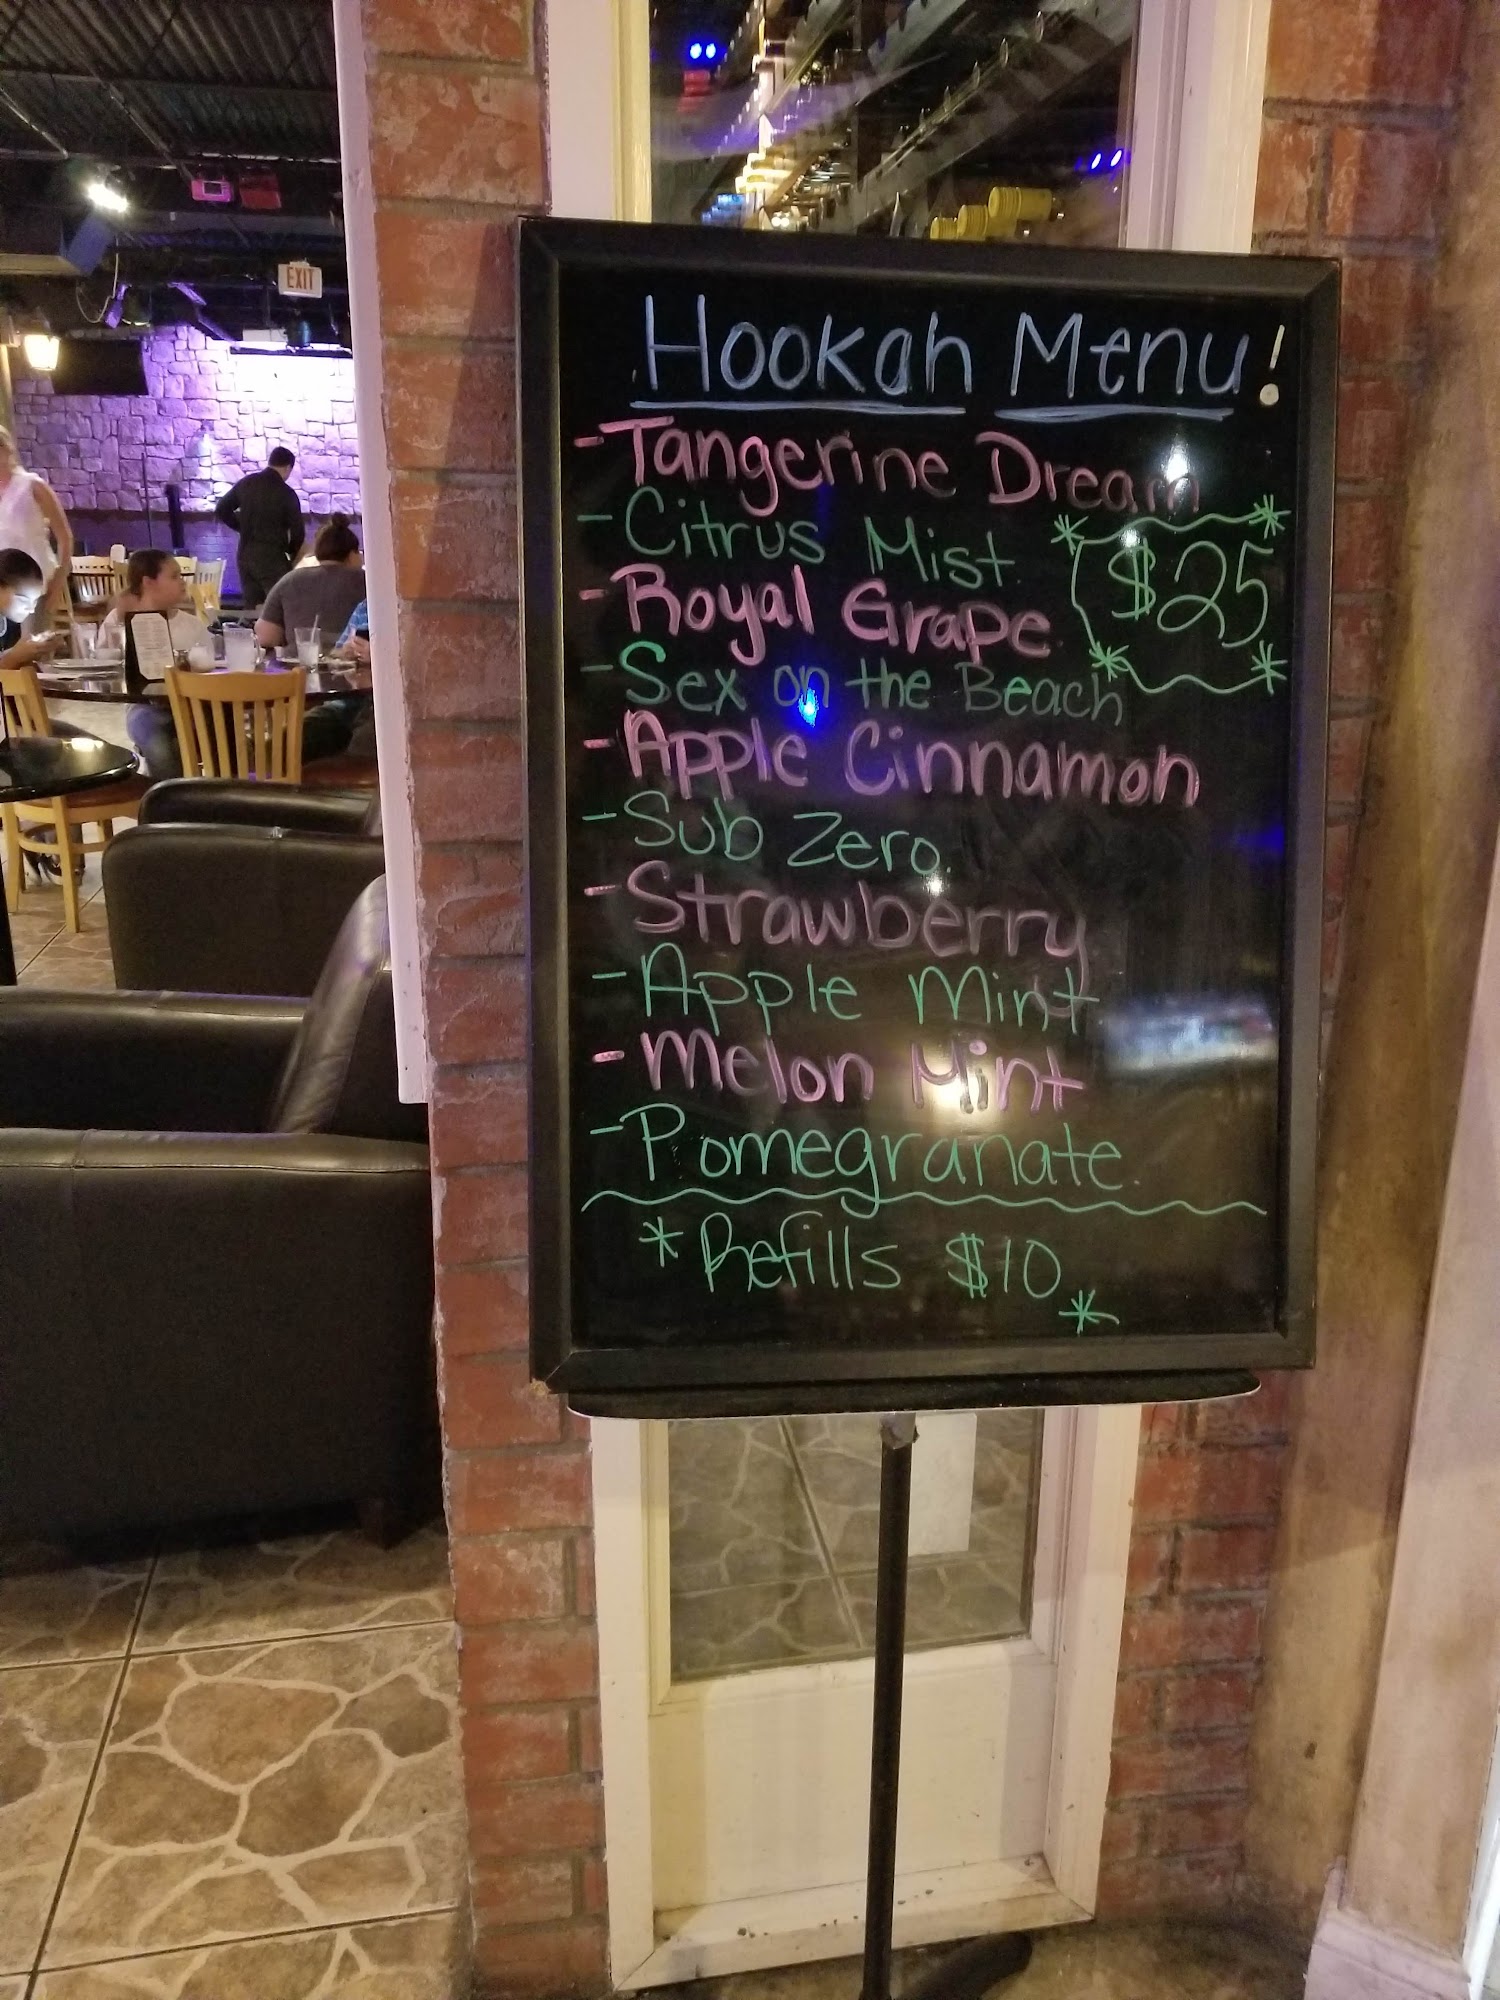 EXIT
Hookah Menu!
-Tangerine Dream
-Citrus Mist
$25
-Royal Grape
-Sex on the Beach
-Apple Cinnamon
-Sub Zero.
-Strawberry
-Apple Mint
-Melon Mint
-Pomegranate.
*Refills $10*